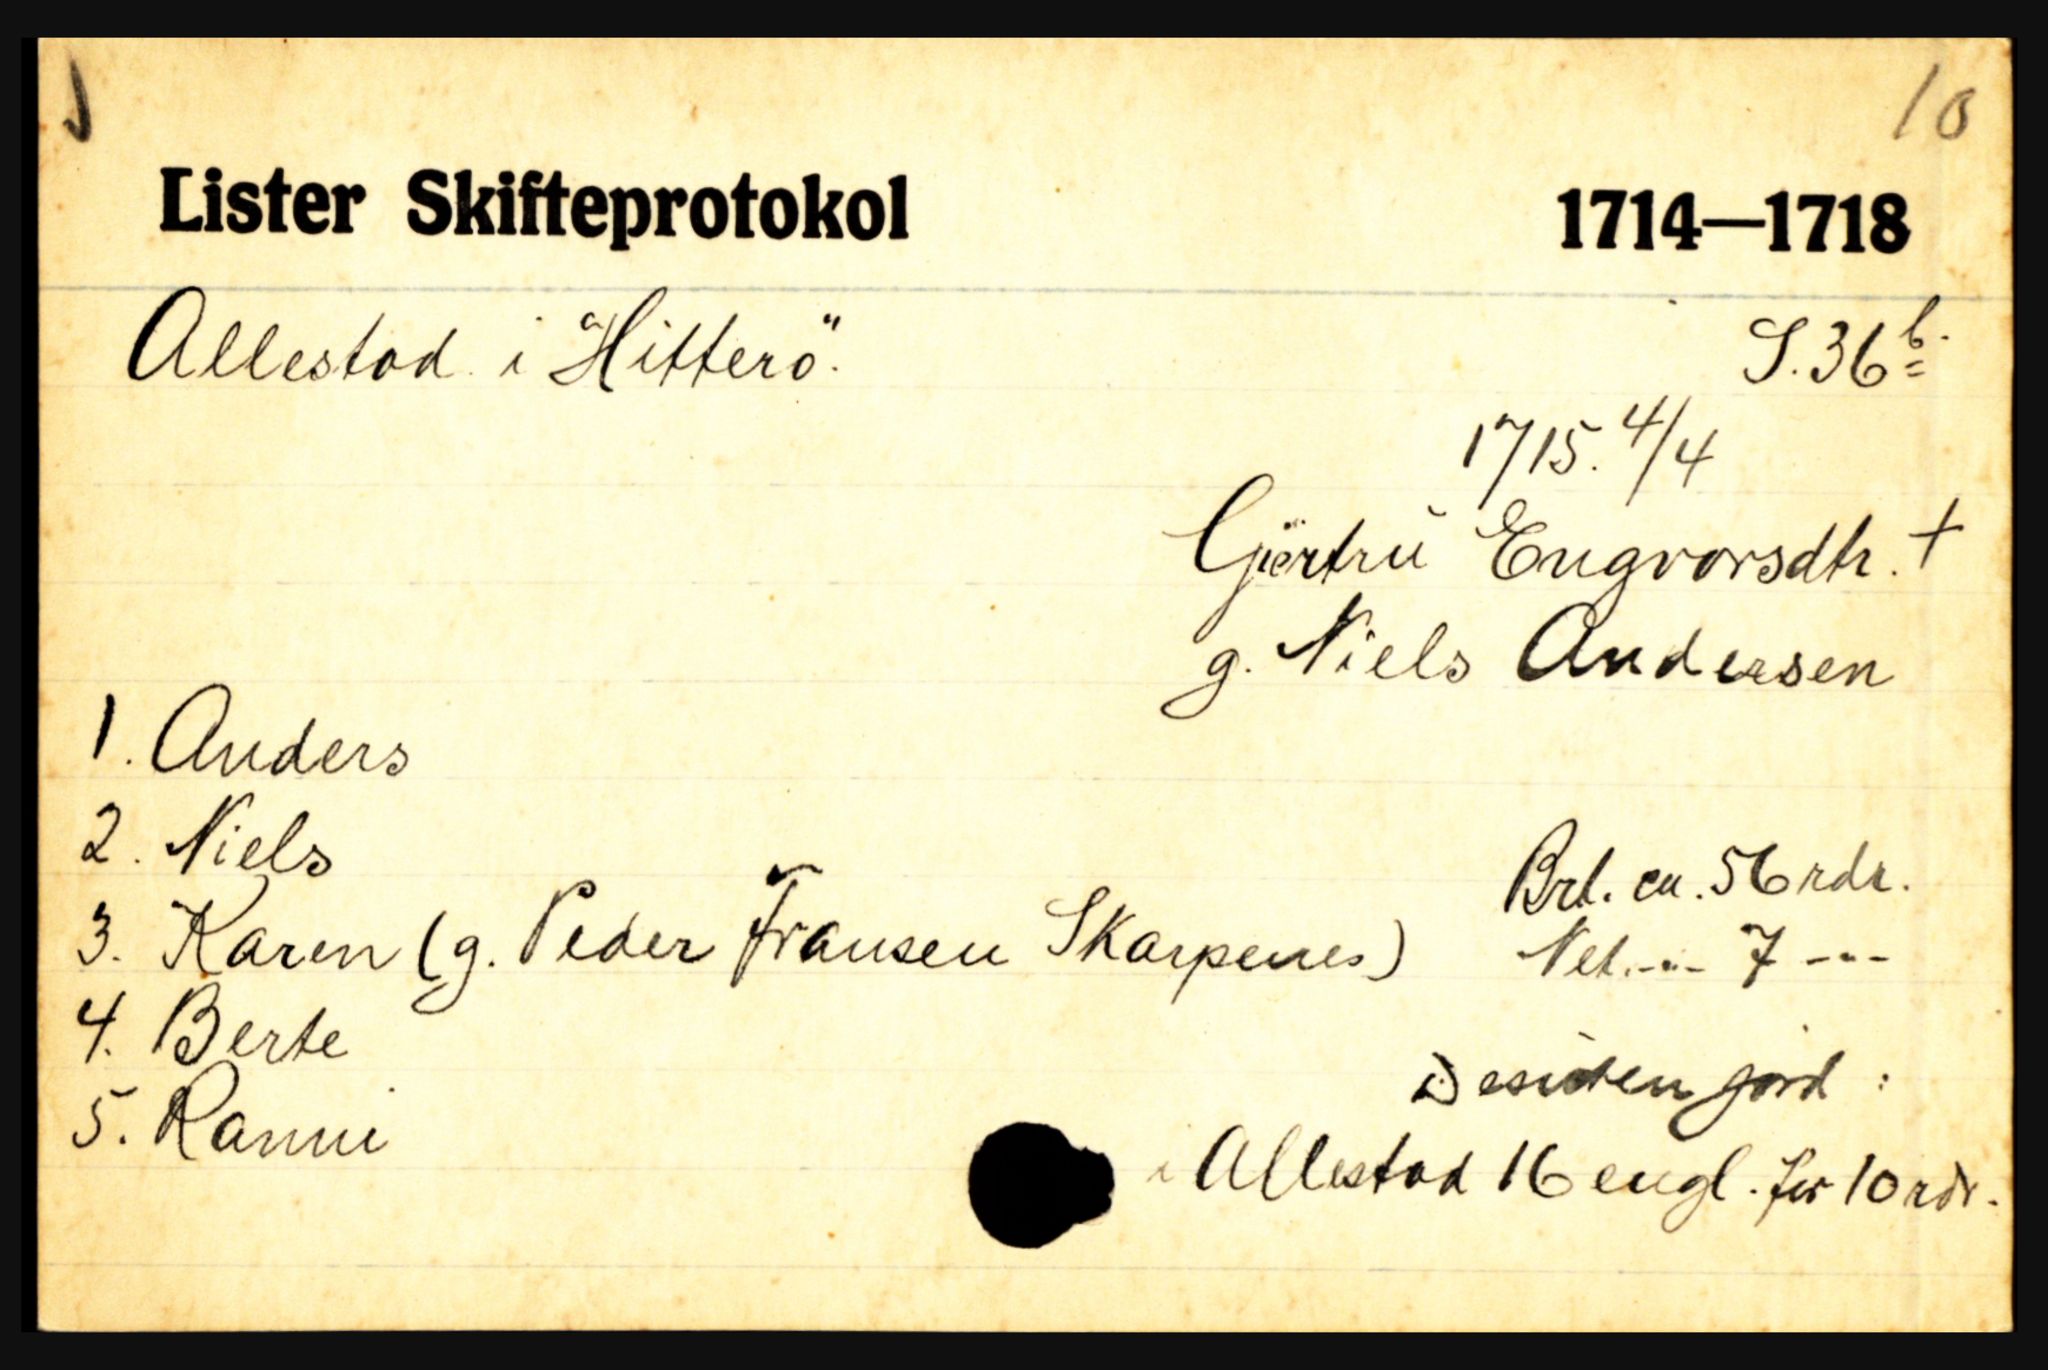 10
Lister Skifteprotokol 1714—1718
Allestad i "Hitterö". S. 36 b.
1715. 4/4
Gjertru Engvorsdtr. +
g. Niels Andersen
1. Anders
2. Niels
3. Karen (g. Peder Fransen Skarpenes)
4. Berte
5. Ranni
Brt. ca. 56 rdr.
Net. -"- 7 -"-
Desuden jord :
i Allestad 16 engl. for 10 rdr.